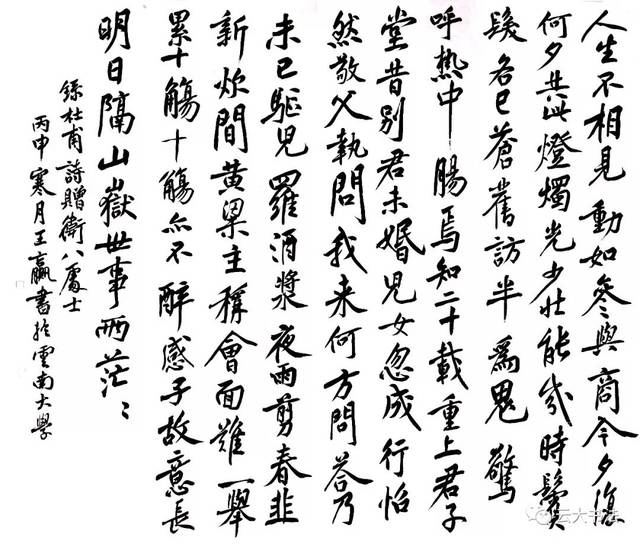 人生不相見動如參與商今夕復
何夕共此燈燭光少壯能幾時鬢
髮各已蒼舊訪半爲鬼驚
呼熱中腸焉知二十載重上君子
堂昔別君未婚兒女忽成行怡
然敬父執問我来何方問答乃
未已驅兒羅酒漿夜雨剪春韭
新炊間黄粱主稱會面難一舉
累十觴十觴亦不醉感子故意長
明日隔山嶽世事兩茫〻
錄杜甫詩贈衛八處士
丙申寒月王贏書於雲南大學
云大书法